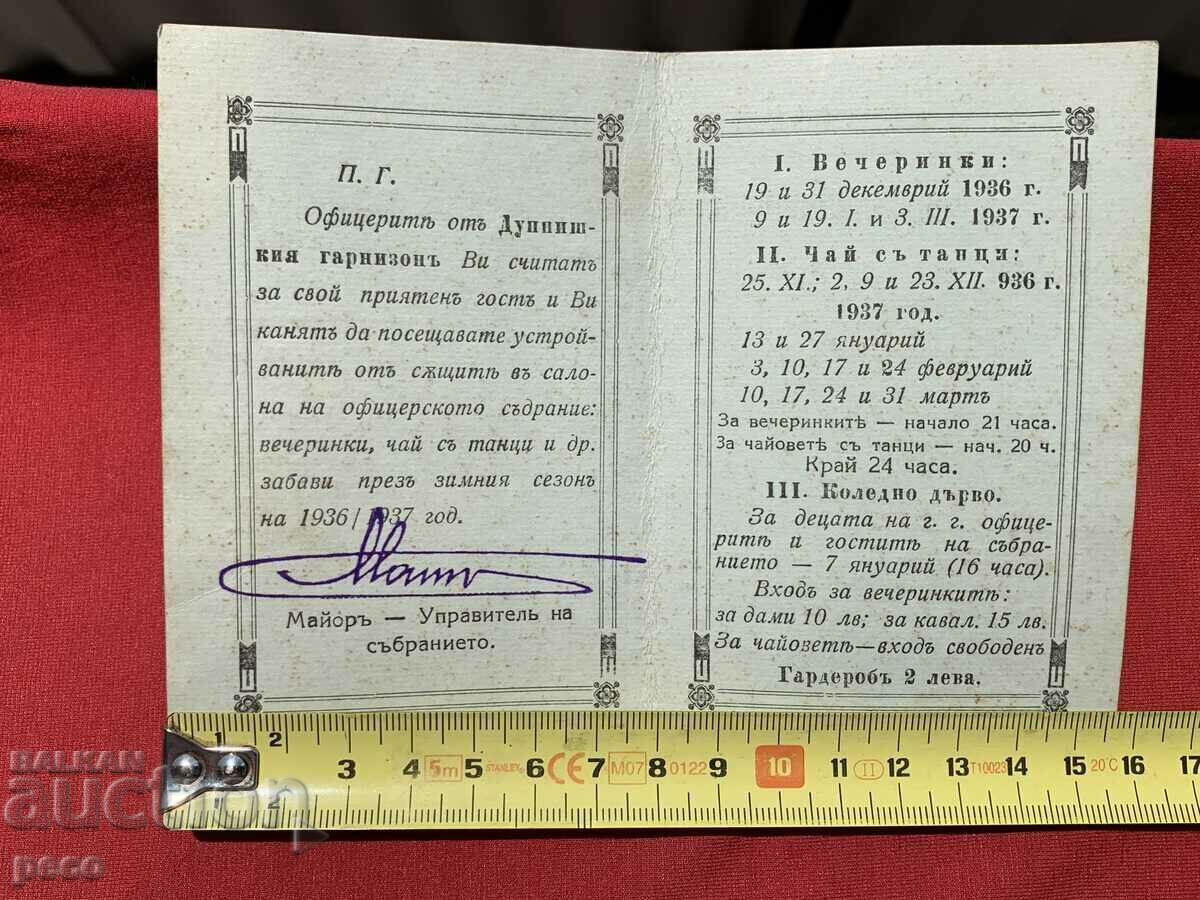 П. Г.
Офицеритѣ отъ Дупниш-
кия гарнизонъ Ви считатъ
за свой приятенъ гость и Ви
канятъ да посещавате устрой-
ванитѣ отъ сѫщитѣ въ сало-
на на офицерското съдрание:
вечеринки, чай съ танци и др.
забави презъ зимния сезонъ
на 1936/1937 год.
Майоръ — Управитель на
събранието.
I. Вечеринки:
19 и 31 декемврий 1936 г.
9 и 19. I. и 3. III. 1937 г.
II. Чай съ танци:
25. XI.; 2, 9 и 23. XII. 936 г.
1937 год.
13 и 27 януарий
3, 10, 17 и 24 февруарий
10, 17, 24 и 31 мартъ
За вечеринкитѣ — начало 21 часа.
За чайоветѣ съ танци — нач. 20 ч.
Край 24 часа.
III. Коледно дърво.
За децата на г. г. офице-
ритѣ и гоститѣ на събра-
нието — 7 януарий (16 часа).
Входъ за вечеринкитѣ:
за дами 10 лв; за кавал. 15 лв.
За чайоветѣ—входъ свободенъ
Гардеробъ 2 лева.
1 2 3 4 5m 5 STANLEY 6 CE 7 M07 8 0122 9 10 11 II 12 13 T10023 14 15 20°C 16 17
1 2
BALKAN
auction
peco